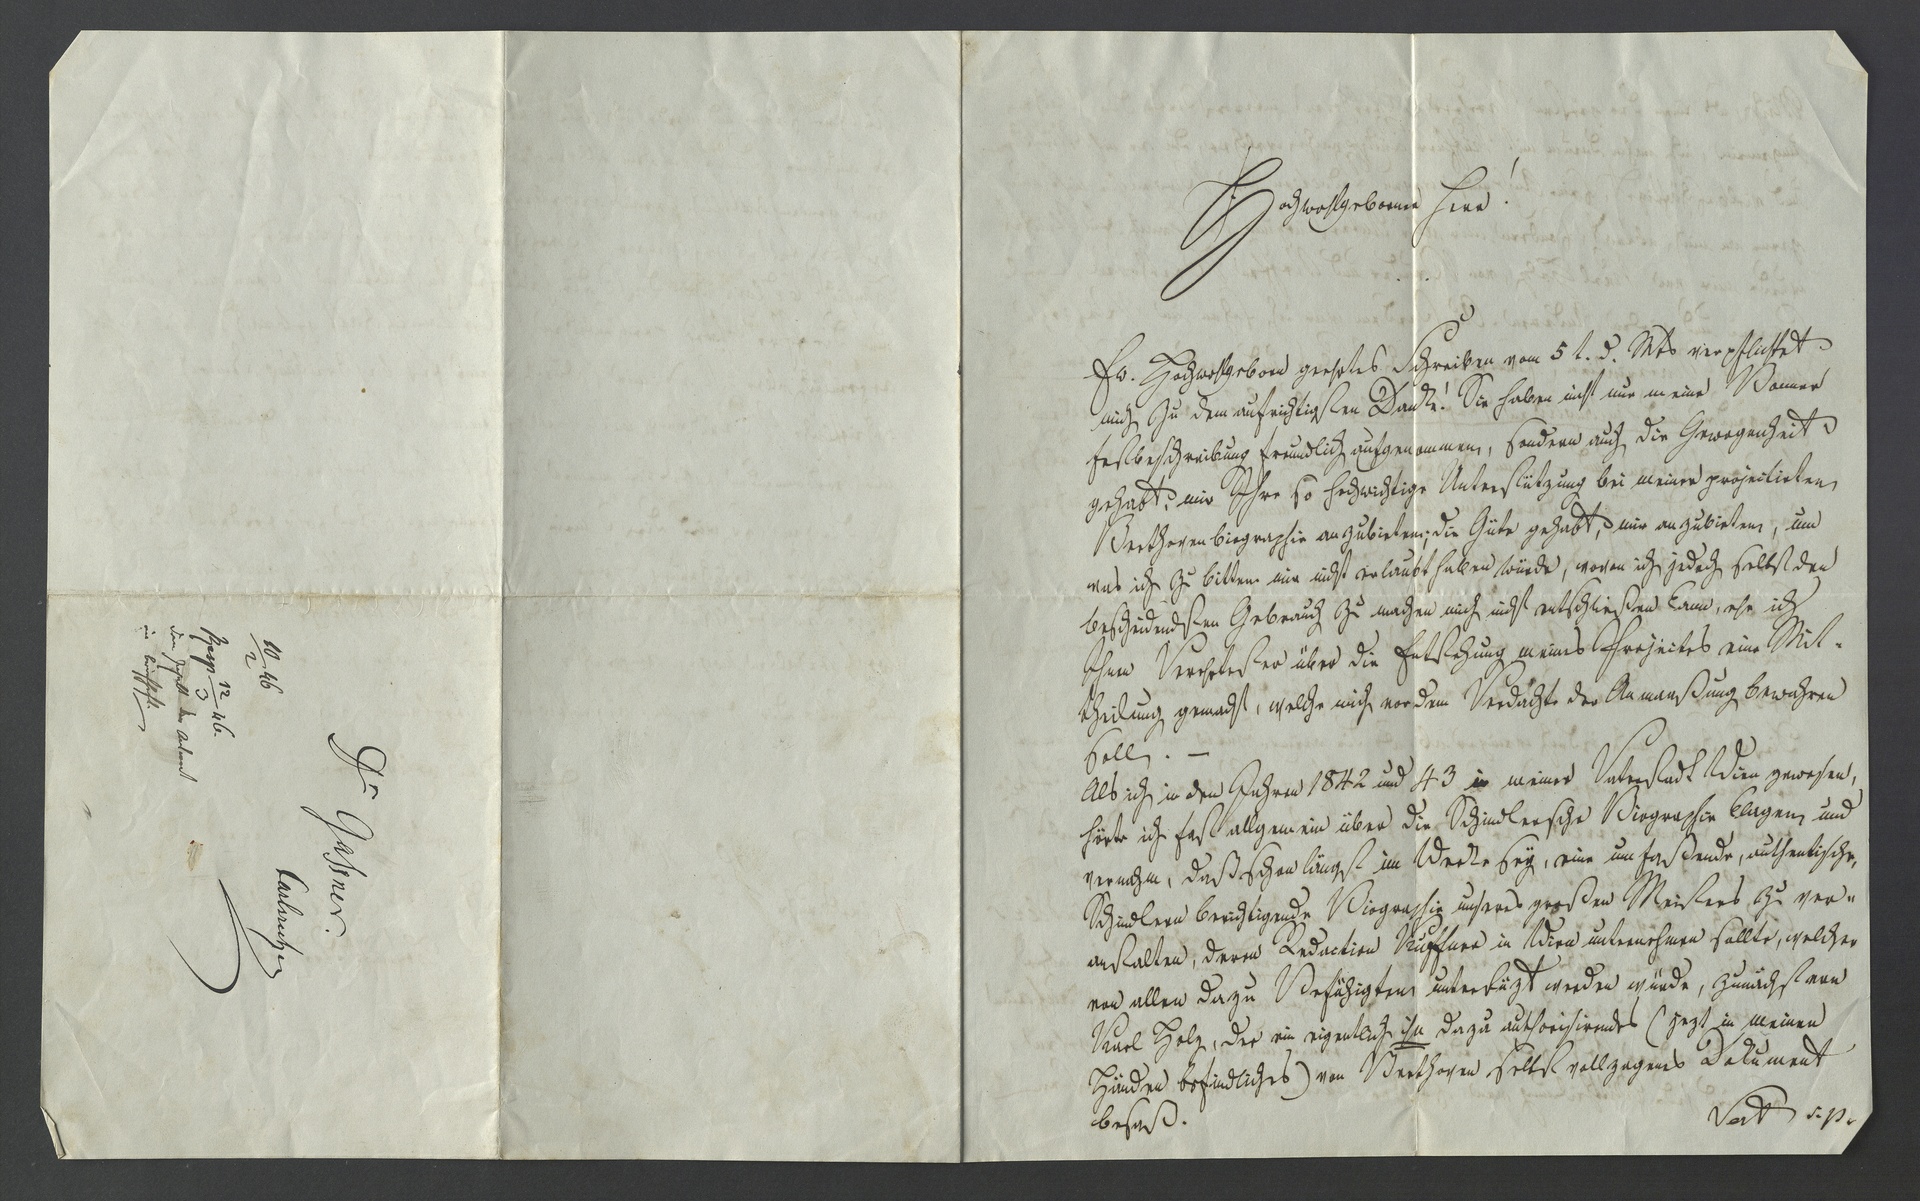 Hochwohlgeborner Herr!
Ew. Hochwohlgeborn geehrtes Schreiben vom 5 t. d. Mts verpflichtet
mich zu dem aufrichtigsten Danke! Sie haben nicht nur meine Bonner
Festbeschreibung freundlich aufgenommen, sondern auch die Gewogenheit
gehabt, mir Ihre so hochwichtige Unterstützung bei meiner projectirten
Beethovenbiographie anzubieten; die Güte gehabt, mir anzubieten, um
was ich zu bitten mir nicht erlaubt haben würde, wovon ich jedoch selbst den
bescheidendsten Gebrauch zu machen mich nicht entschließen kann, ehe ich
Ihnen Verehrtester über die Entstehung meines Projectes eine Mit-
theilung gemacht, welche mich vor dem Verdachte der Anmaaßung bewahren
soll. —
Als ich in den Jahren 1842 und 43 in meiner Vaterstadt Wien gewesen,
hörte ich fast allgemein über die Schindlersche Biographie klagen, und
vernahm, daß schon längst im Werke sey, eine umfaßende, authentische,
Schindlern berichtigende Biographie unseres großen Meisters zu ver-
anstalten, deren Redaction Kuffner in Wien unternehmen sollte, welcher
von allen dazu Befähigten unterstüzt werden würde, zunächst von
Karl Holz, der ein eigentlich ihn dazu authorisirendes (jezt in meinen
Händen befindliches) von Beethoven selbst vollzogenes Dokument
besaß.
Vert s. p.
Dr Gaßner.
Carlsruhe
10/2 46
Resp 12/3 46.